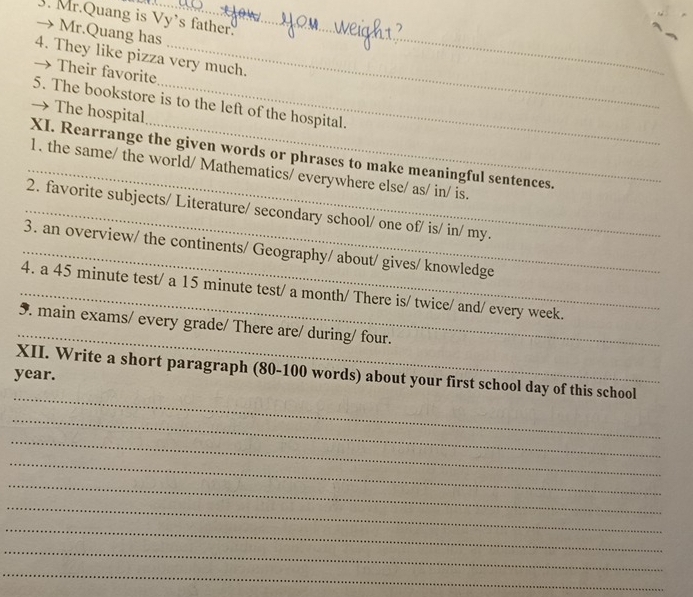 do you you weight?
3. Mr.Quang is Vy's father.
→ Mr.Quang has
4. They like pizza very much.
→ Their favorite
5. The bookstore is to the left of the hospital.
→ The hospital
XI. Rearrange the given words or phrases to make meaningful sentences.
1. the same/ the world/ Mathematics/ everywhere else/ as/ in/ is.
2. favorite subjects/ Literature/ secondary school/ one of/ is/ in/ my.
3. an overview/ the continents/ Geography/ about/ gives/ knowledge
4. a 45 minute test/ a 15 minute test/ a month/ There is/ twice/ and/ every week.
5. main exams/ every grade/ There are/ during/ four.
XII. Write a short paragraph (80-100 words) about your first school day of this school
year.